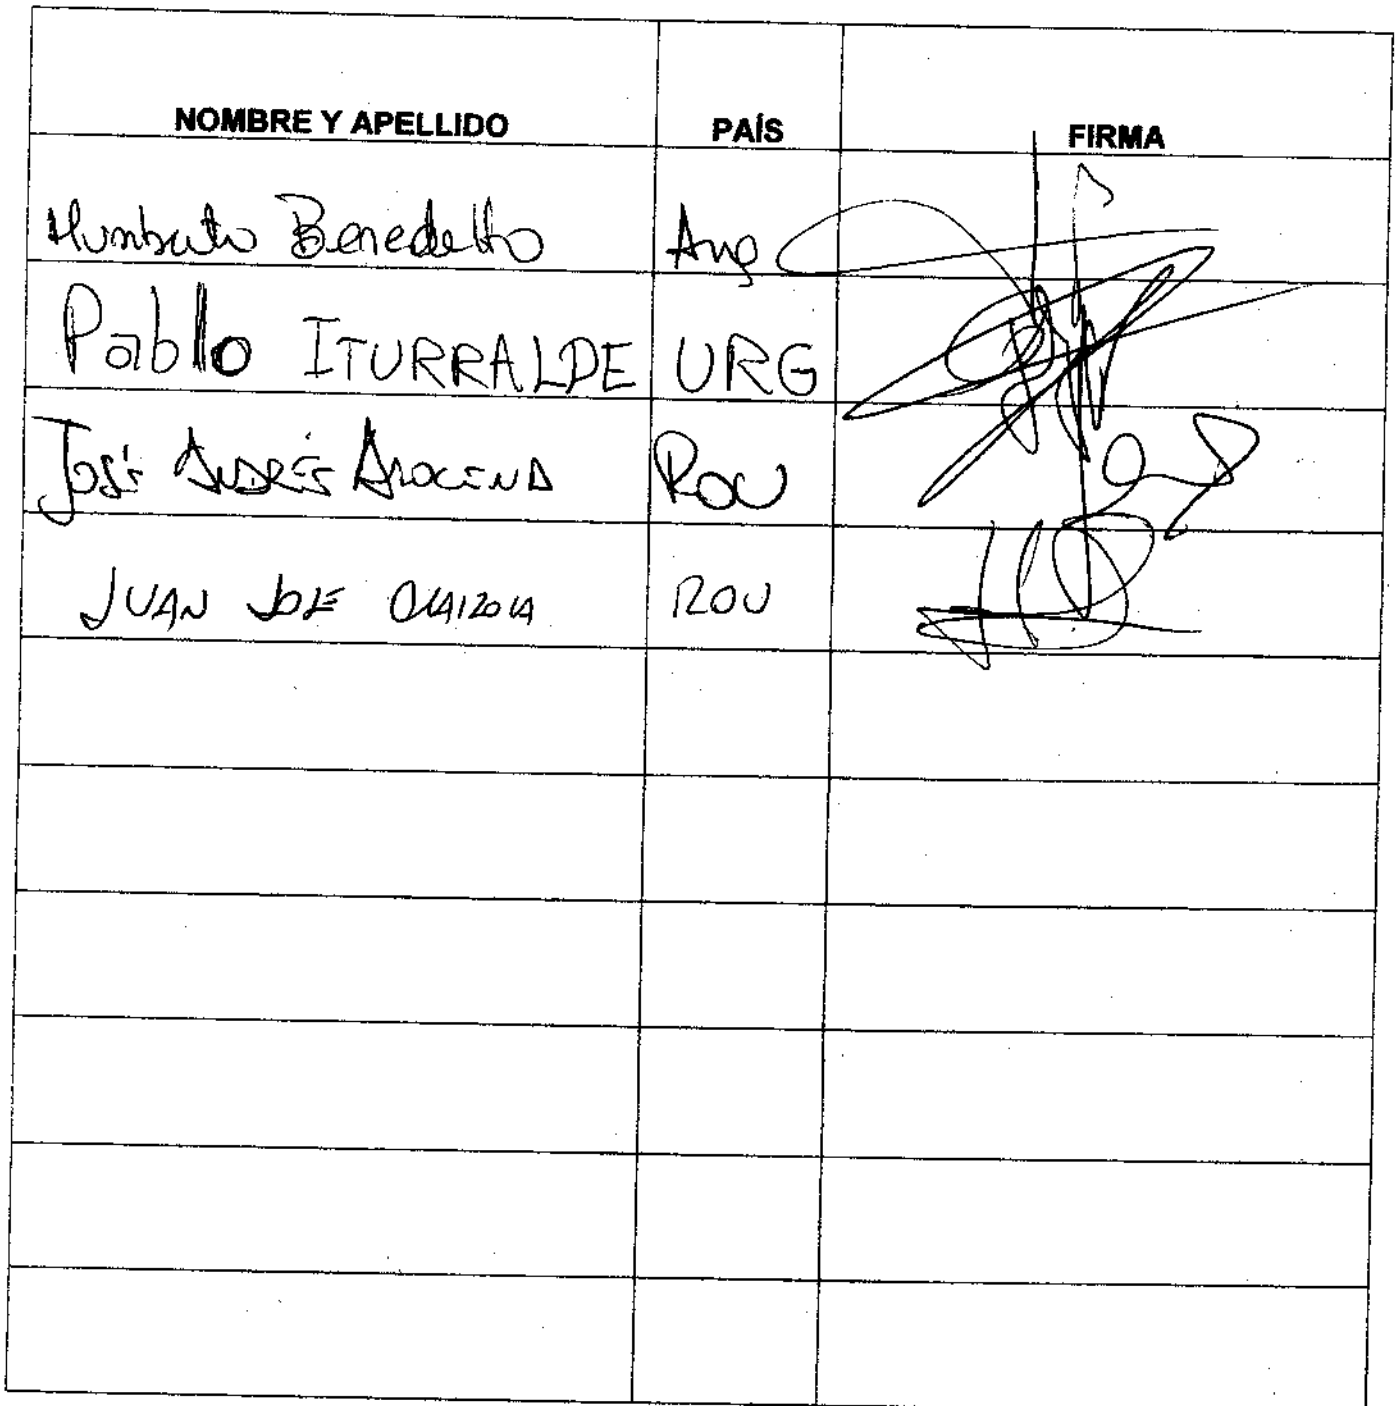 NOMBRE Y APELLIDO PAÍS FIRMA
Humberto Benedetto Arg
Pablo ITURRALDE URG
José ANDRÉS AROCENA ROU
JUAN JOSE OLAIZOLA ROU